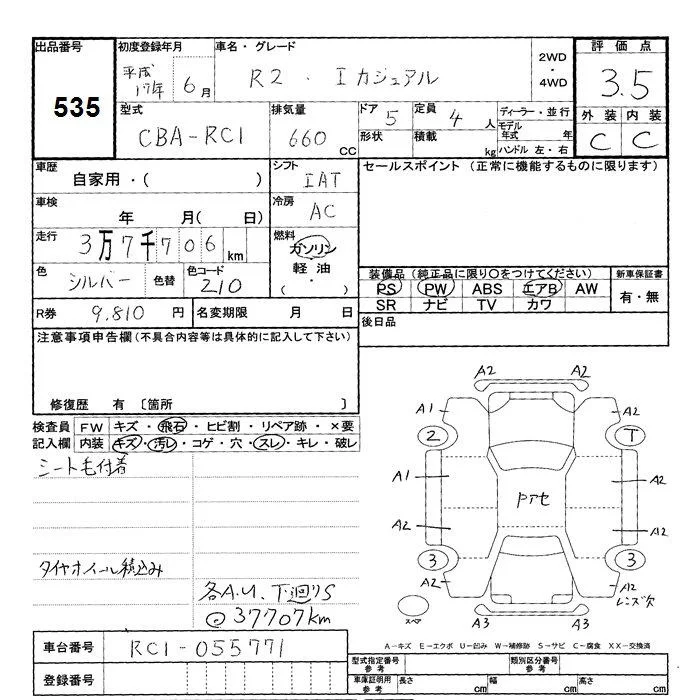 出品番号
535
初度登録年月
平成17年 6月
車名・グレード
R2 . I カジュアル
2WD
・
4WD
評価点
3.5
外装 内装
C C
型式
CBA-RC1
排気量
660 cc
ドア 5
定員 4 人
形状
積載 kg
ディーラー・並行
モデル年式 年
ハンドル 左・右
車歴
自家用・( )
シフト
IAT
車検
年 月( 日)
冷房
AC
走行
3万7千706 km
燃料
ガソリン
軽油
( ・ )
色
シルバー
色替
色コード
210
R券 9,810 円
名変期限 月 日
セールスポイント (正常に機能するものに限ります)
装備品 (純正品に限り○をつけてください)
PS PW ABS エアB AW
SR ナビ TV カワ
新車保証書
有・無
後日品
注意事項申告欄(不具合内容等は具体的に記入して下さい)
修復歴 有 〔箇所 〕
検査員記入欄
FW キズ・飛石・ヒビ割・リペア跡・×要
内装 キズ・汚レ・コゲ・穴・スレ・キレ・破レ
シート毛付着
タイヤホイール積込み
各A.U、下廻りS
@37707km
A2 A2
A1 A2
2 T
A1 A2
Pアセ
A2 A2
3 3
A2 A2
レンズ欠
スペア
A3 A3
A-キズ E-エクボ U-凹み W-補修跡 S-サビ C-腐食 XX-交換済
車台番号
RC1-055771
登録番号
型式指定番号
参考
類別区分番号
参考
車庫証明用
参考
長さ cm
幅 cm
高さ cm